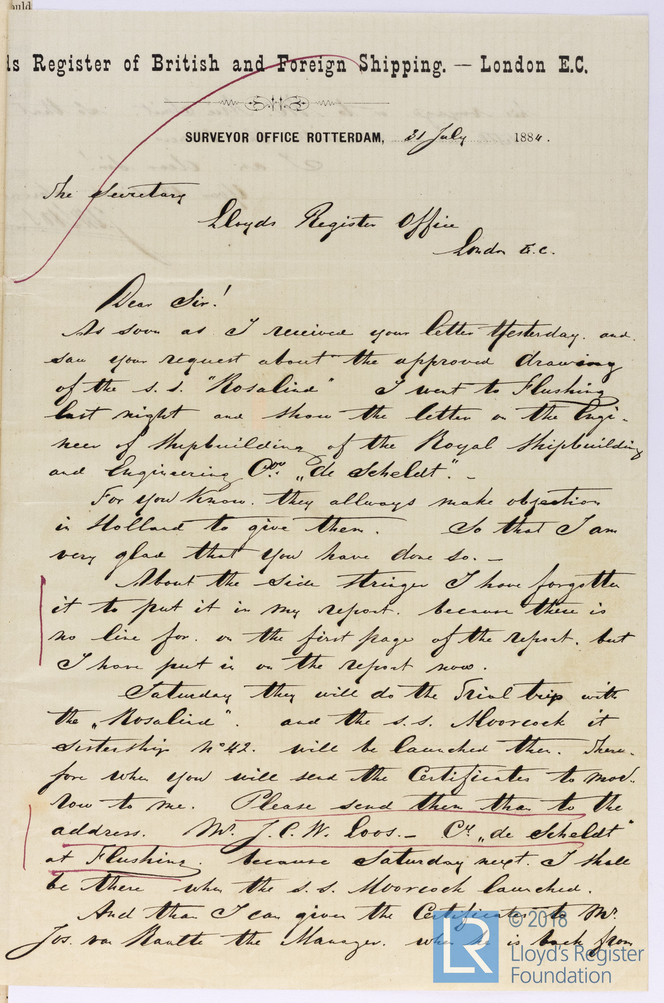 ould
ds Register of British and Foreign Shipping. — London E.C.
SURVEYOR OFFICE ROTTERDAM, 31 July 1884.
The Secretary
Lloyds Register Office
London E.C.
Dear Sir!
As soon as I received your letter Yesterday. and.
saw your request about the approved drawing
of the s.s. "Rosalind" I went to Flushing
last night and show the letter on the Engi-
neer of Shipbuilding of the Royal Shipbuilding
and Engineering Coy. „de Scheldt". -
For you Know. they allways make objection
in Holland to give them. So that I am
very glad that you have done so. -
About the Side Stringer I have forgotten
it to put it in my report. because there is
no line for. on the first page of the report. but
I have put in on the report now.
Saturday they will do the Trial trip with
the „Rosalind". and the s.s. Moorcock it
Sistership No 42. will be launched then. There-
fore when you will send the Certificates to mor-
row to me. Please send them than to the
address. Mr. J.C.W. Loos. - Cy. „de Scheldt"
at Flushing. because Saturday next. I shall
be there when the s.s. Moorcock launched.
And than I can given the Certificates to Mr.
Jos. van Raalte the Manager. when he is back from
© 2018
LR
Lloyd's Register
Foundation